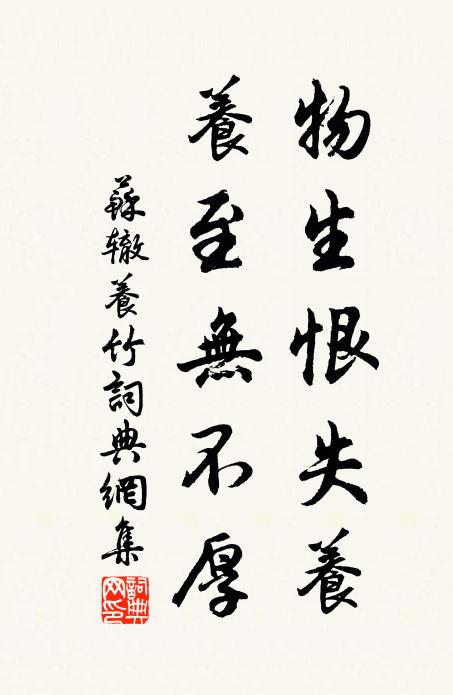 物生恨失養
養至無不厚
蘇辙養竹詞典網集
詞典网印